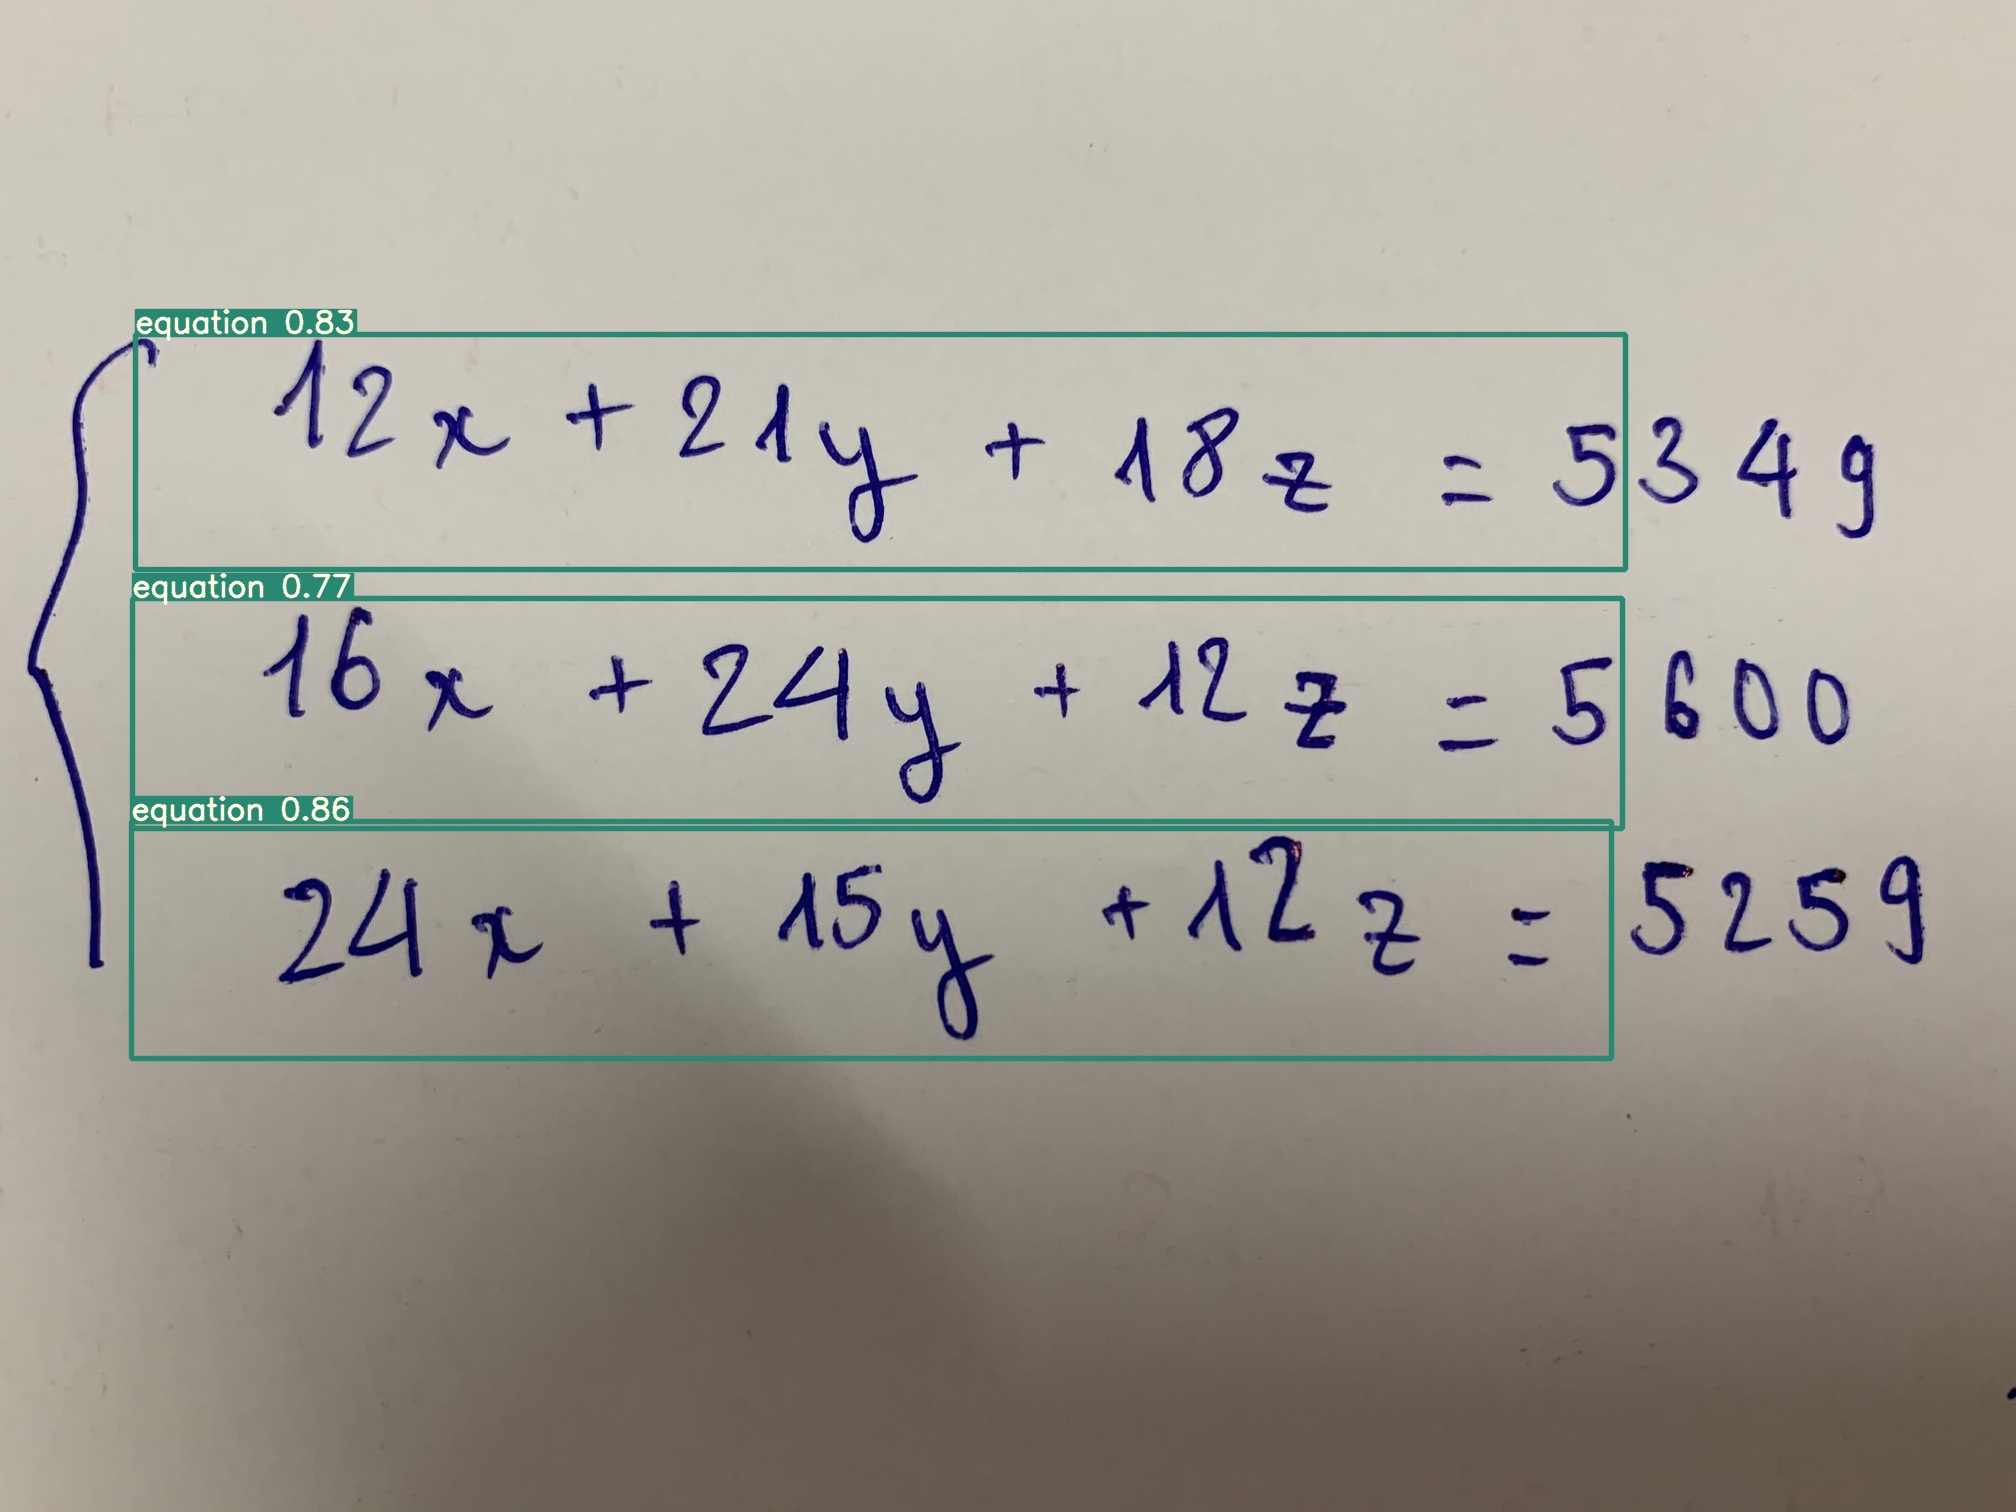 equation 0.83
12x + 21y + 18z = 5349
equation 0.77
16x + 24y + 12z = 5600
equation 0.86
24x + 15y + 12z = 5259